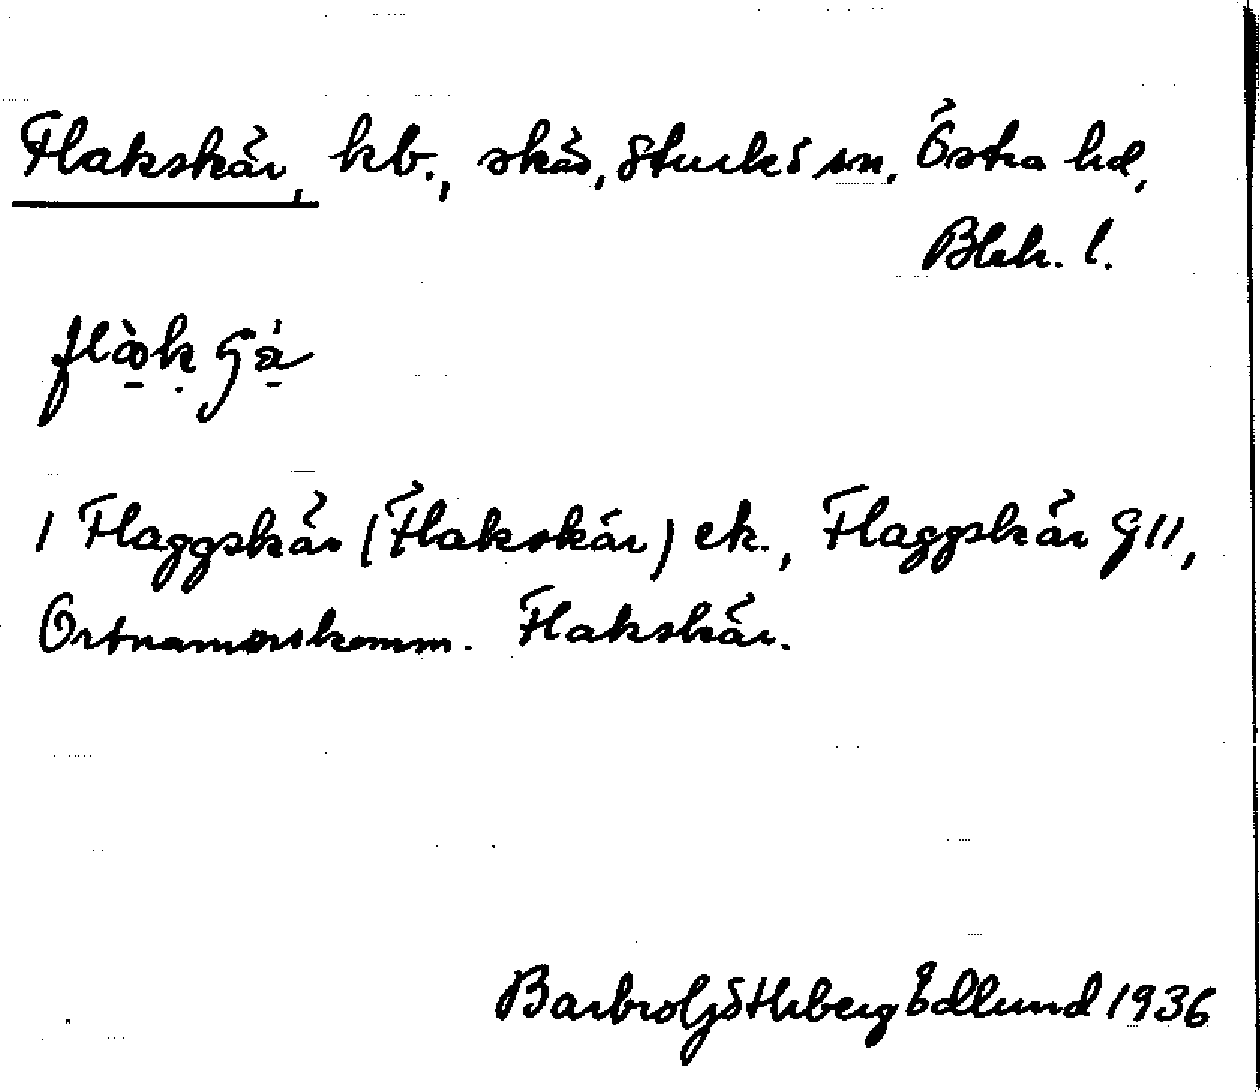 Flakskär, kb., skär, Sturkö sn, Östra hd,
Blek. l.
1 Flaggskär (Flakskär) ek., Flaggskär G11,
Ortnamnskomm. Flakskär.
Barbro Göthberg Edlund 1936